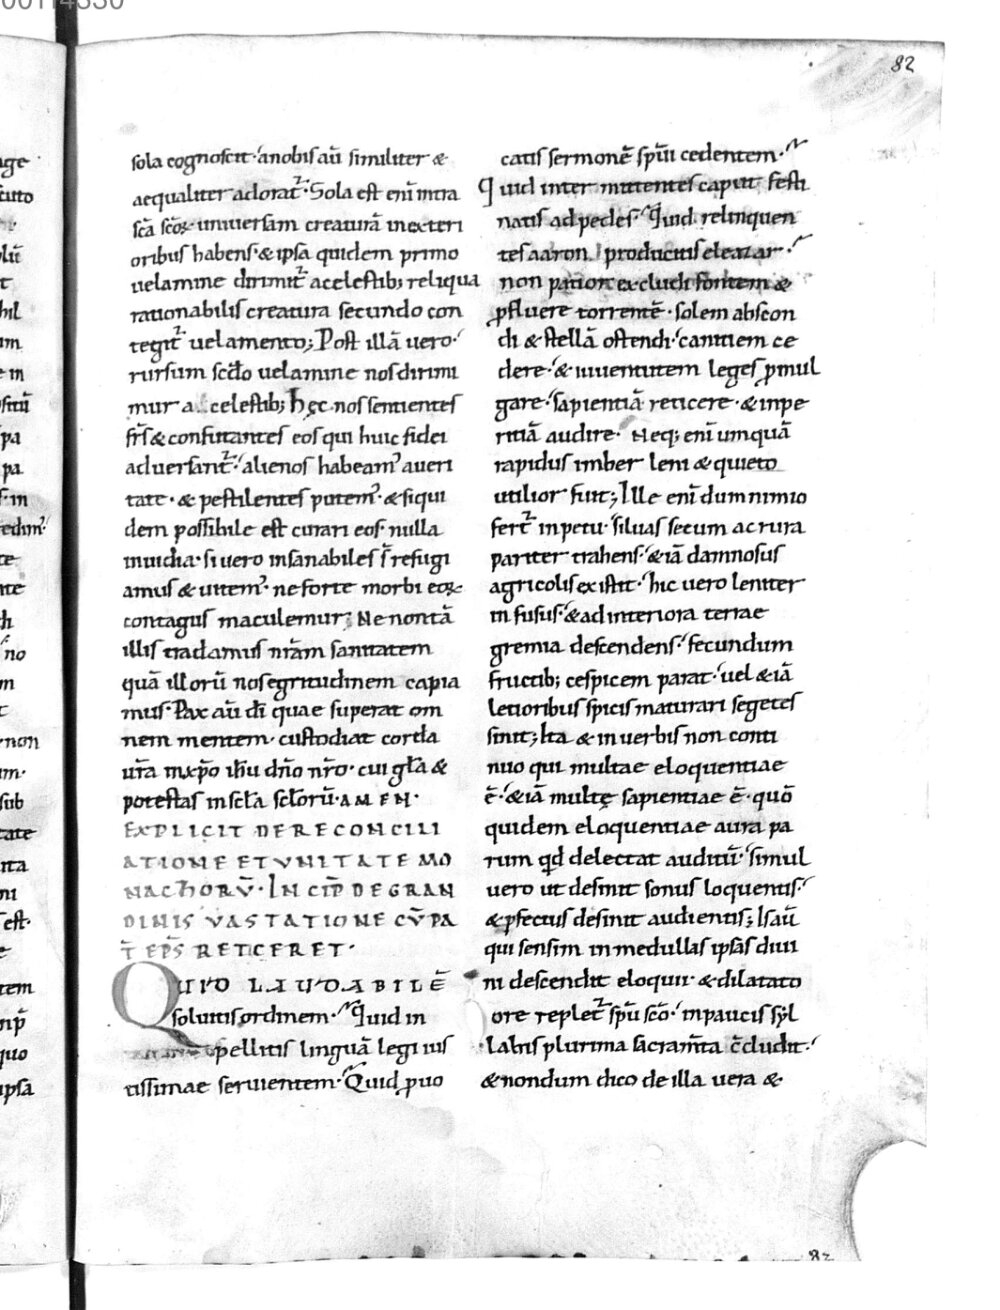 82
sola cognoscit· a nobis aū similiter &
aequaliter adorat᷑· Sola est enī intra
sc̄a sc̄oꝝ· uniuersam creaturā in exteri
oribus habens· & ipsa quidem primo
uelamine dirimit᷑ a celestib; reliqua
rationabilis creatura secundo con
tegit᷑ uelamento; Post illā uero·
rursum sc̄do uelamine nos dirimi
mur a celestib; hęc nos sentientes
fr̄s & confutantes eos qui huic fidei
aduersant᷑· alienos habeam᾽ a ueri
tate· & pestilentes putem᾽· & siqui
dem possibile est curari eos· nulla
inuidia· si uero insanabiles s̄ refugi
amus & uitem᾽· ne forte morbi eoꝝ
contagiis maculemur; Ne non tā
illis tradamus nr̄am sanitatem
quā illorū nos egritudinem capia
mus· Pax aū dī quae superat om
nem mentem· custodiat corda
ur̄a in xp̄o ihū dn̄o nr̄o· cui gl̄a &
potestas in scl̄a scl̄orū· AMEN·
EXPLICIT DE RECONCILI
ATIONE ET VNITATE MO
NACHORV̄· INCIP̄ DE GRAN
DINIS VASTATIONE CV̄ PA
T̄ EP̄S RETICERET·
QUID LAUDABILĒ
soluitis ordinem· Quid in
pellitis linguā legi ius
tissimae seruientem· Quid puo
catis sermonē sp̄ui cedentem·
Quid intermittentes caput festi
natis ad pedes· Quid relinquen
tes aaron producitis eleazar·
non patior excludi fontem &
ꝓfluere torrentē· solem abscon
di & stellā ostendi· canitiem ce
dere· & iuuentutem leges ꝓmul
gare· sapientiā reticere· & inpe
ritiā audire· Neq; enī umquā
rapidus imber leni & quieto
utilior fuit; Ille enī dum nimio
fert᷑ inpetu· siluas secum ac rura
pariter trahens· & iā damnosus
agricolis existit· hic uero leniter
infusus· & ad interiora terrae
gremia descendens· fecundum
fructib; cespicem parat· uel & iā
letioribus spicis maturari segetes
sinit; Ita & in uerbis non conti
nuo qui multae eloquentiae
ē· & iā multę sapientiae ē· quō
quidem eloquentiae aura pa
rum qd̄ delectat auditū· simul
uero ut desinit sonus loquentis·
& ꝓfectus desinit audientis; Is aū
qui sensim in medullas ipsas diui
ni descendit eloquii· & dilatato
ore replet᷑ sp̄u sc̄o· in paucis syl
labis plurima sacram̄ta c̄cludit·
& nondum dico de illa uera &